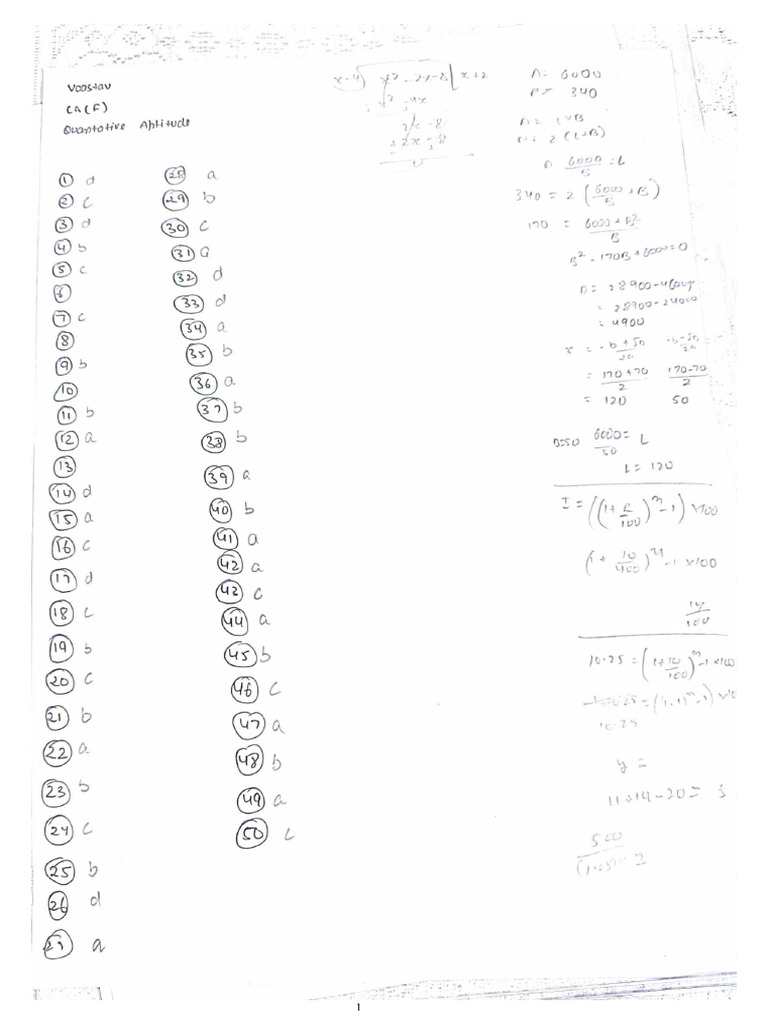 CA(F)
Quantative Aptitude
1 d
2 c
3 d
4 b
5 c
6
7 c
8
9 b
10
11 b
12 a
13
14 d
15 a
16 c
17 d
18 c
19 b
20 c
21 b
22 a
23 b
24 c
25 b
26 d
27 a
28 a
29 b
30 c
31 a
32 d
33 d
34 a
35 b
36 a
37 b
38 b
39 a
40 b
41 a
42 a
43 c
44 a
45 b
46 c
47 a
48 b
49 a
50 c
x-4) x² - 2x-8 ( x+2
2x - 8
A = 6000
P = 340
A = L×B
P = 2 (L+B)
6000/B = L
340 = 2 (6000/B + B)
170 = 6000 + B²/B
B² - 170B + 6000 = 0
= 28900 - 24000
= 4900
= 170+70/2 170-70/2
= 120 50
B=50 6000/50 = L
L = 120
I = ((1+R/100)^m - 1) ×100
(1 + 10/400)^4 - 1 ×100
10.25 = (1+10/100)^m - 1 ×100
10.25
y =
11+14-20=
500
1